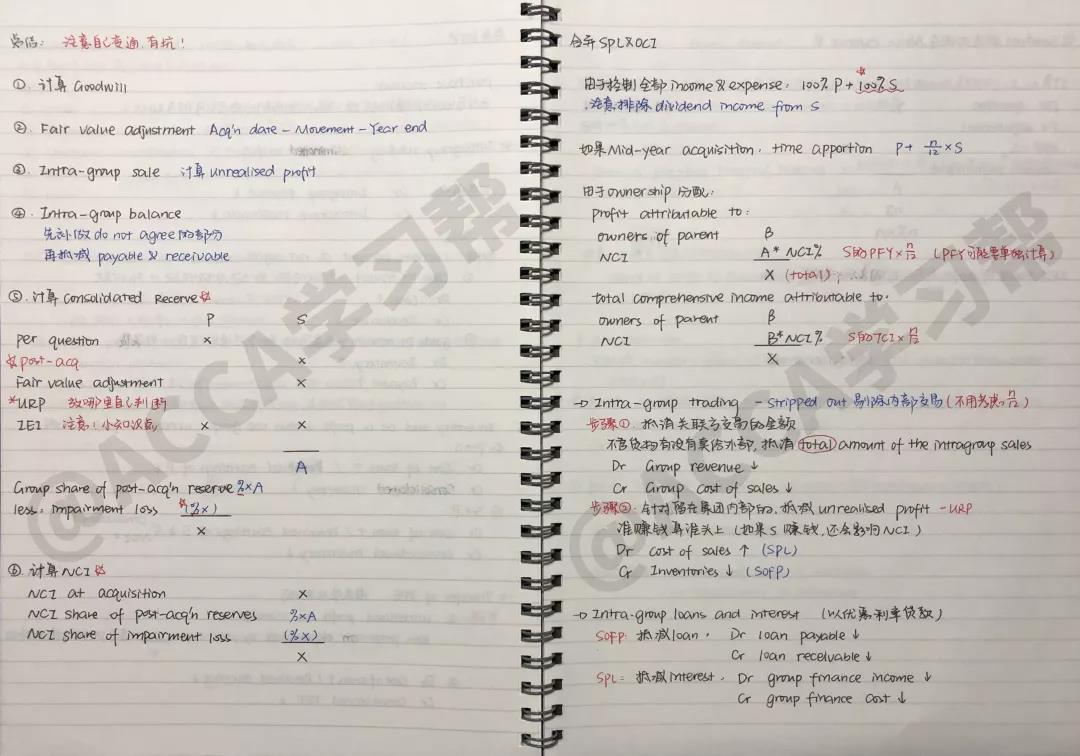 总结: 注意自己变通,有坑!
①. 计算 Goodwill
②. Fair value adjustment Acq'n date - Movement - Year end
③. Intra-group sale 计算 unrealised profit
④. Intra-group balance
先补做 do not agree 的部分
再抵减 payable & receivable
⑤. 计算 Consolidated Reserve ☆
P S
per question ×
☆post-acq ×
Fair value adjustment ×
*URP 放哪里自己判断
IEI 注意!小知识点 × ×
A
Group share of post-acq'n reserve %×A
less: impairment loss *(%×)
×
⑥. 计算 NCI ☆
NCI at acquisition ×
NCI share of post-acq'n reserves %×A
NCI share of impairment loss (%×)
×
合并 SPL&OCI
用于控制全部 income & expense, 100% P + 100% S ☆
注意排除 dividend income from S
如果 Mid-year acquisition, time apportion P + n/12 × S
用于 ownership 分配:
profit attributable to:
owners of parent β
NCI A* NCI% S的PFY × n/12 (PFY可能要单独计算)
X (total);
total comprehensive income attributable to:
owners of parent β
NCI B* NCI% S的TCI × n/12
X
→ Intra-group trading - stripped out 剔除内部交易 (不用考虑 n/12)
步骤①. 抵消关联方交易的金额
不管货物有没有卖给外部, 抵消 total amount of the intragroup sales
Dr Group revenue ↓
Cr Group cost of sales ↓
步骤②. 针对留在集团内部的, 抵减 unrealised profit - URP
谁赚钱算谁头上 (如果S赚钱, 还会影响NCI)
Dr cost of sales ↑ (SPL)
Cr Inventories ↓ (SOFP)
→ Intra-group loans and interest (以优惠利率贷款)
SOFP: 抵减 loan, Dr loan payable ↓
Cr loan receivable ↓
SPL: 抵减 interest, Dr group finance income ↓
Cr group finance cost ↓
@ACCA学习帮
@ACCA学习帮